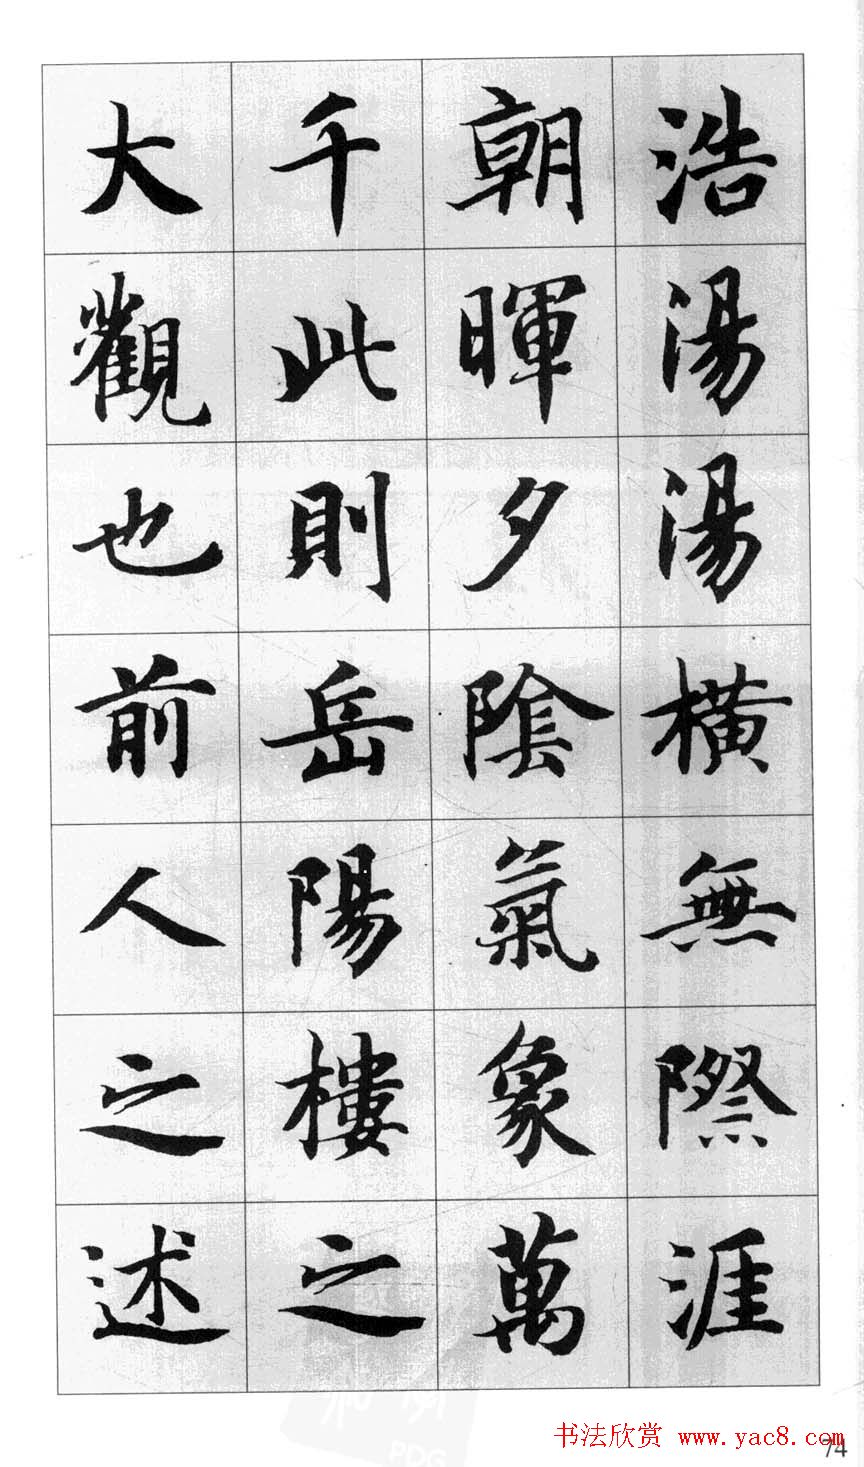 浩湯湯橫無際涯
朝暉夕陰氣象萬
千此則岳陽樓之
大觀也前人之述
书法欣赏 www.yac8.com
74